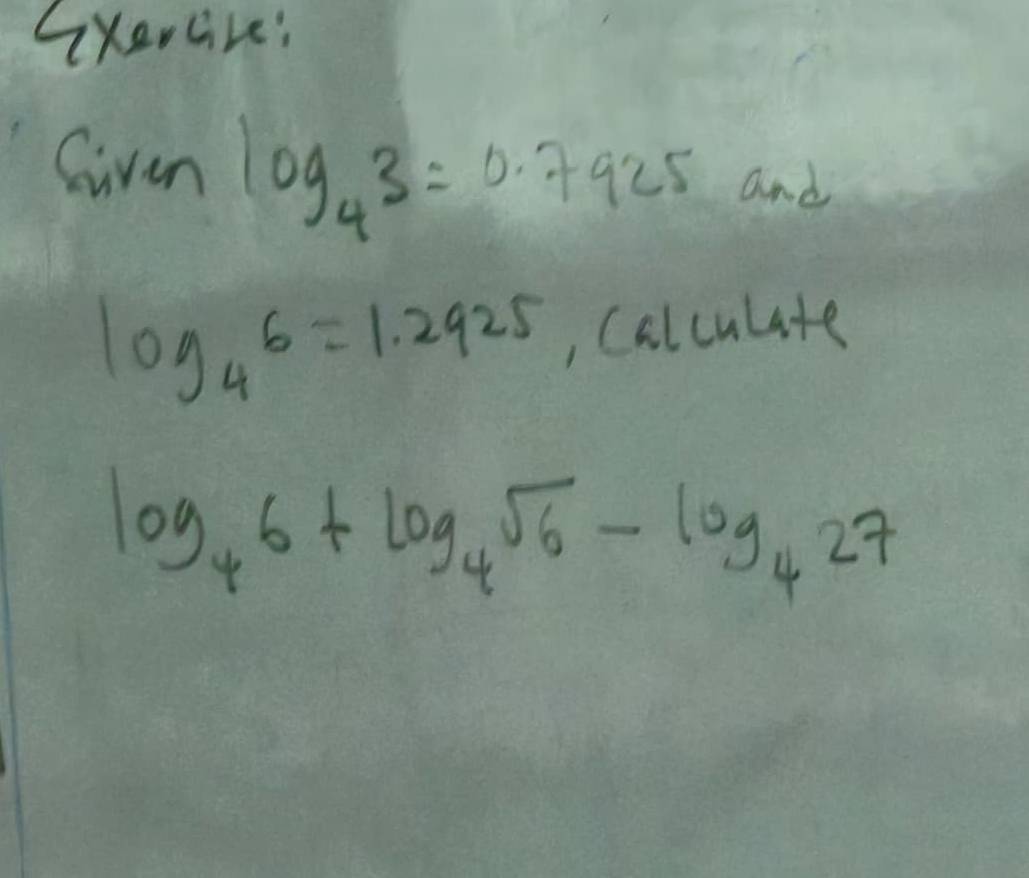 Exercise:
Given log₄3 = 0.7925 and
log₄6 = 1.2925, Calculate
log₄6 + log₄√6 − log₄27